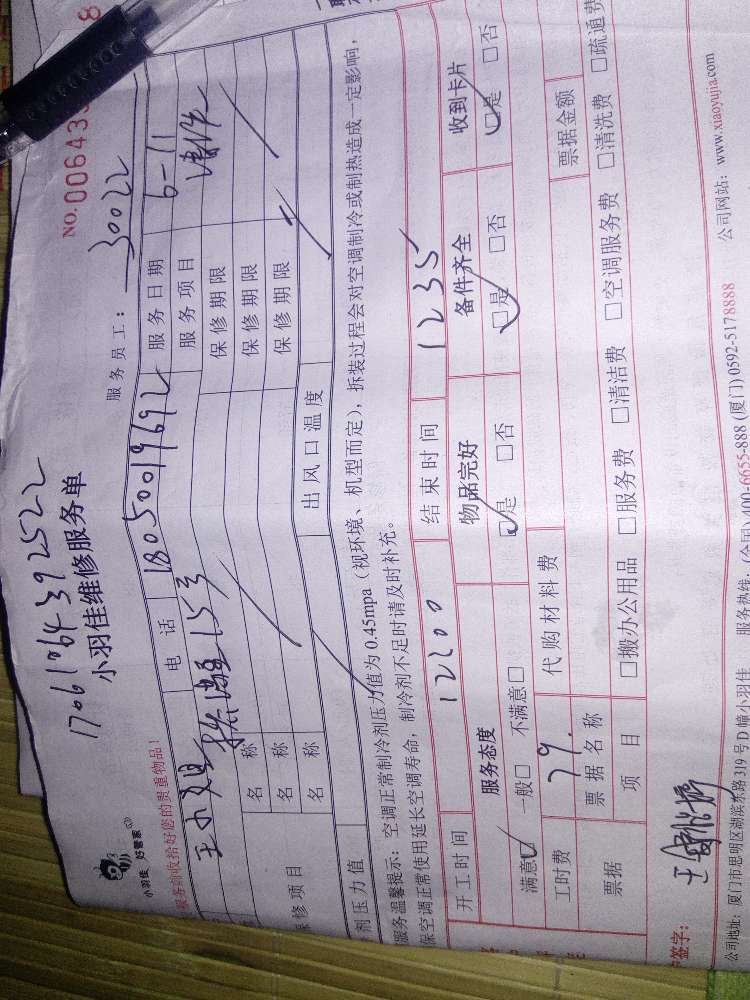 17061064392522
NO.006433 8
小羽佳 好管家
小羽佳维修服务单
服务员工: 30022
服务前收拾好您的贵重物品!
王小姐
电话 18050019692
服务日期 6-11
15号
服务项目 清作
名称
保修期限
名称
保修期限
修项目
名称
保修期限
剂压力值
出风口温度
服务温馨提示: 空调正常制冷剂压力值为 0.45mpa (视环境、机型而定), 拆装过程会对空调制冷或制热造成一定影响,
保空调正常使用延长空调寿命, 制冷剂不足时请及时补充。
开工时间 1200 结束时间 1235
服务态度 物品完好 备件齐全 收到卡片
满意□ 一般□ 不满意□ □是 □否 □是 □否 □是 □否
工时费 79. 代购材料费
票据 票据名称 票据金额
项目 □搬办公用品 □服务费 □清洁费 □空调服务费 □清洗费 □疏通费
签字:
公司地址: 厦门市思明区湖滨东路 319 号 D 幢小羽佳 服务热线: (全国) 400-6655-888 (厦门) 0592-5178888 公司网站: www.xiaoyujia.com